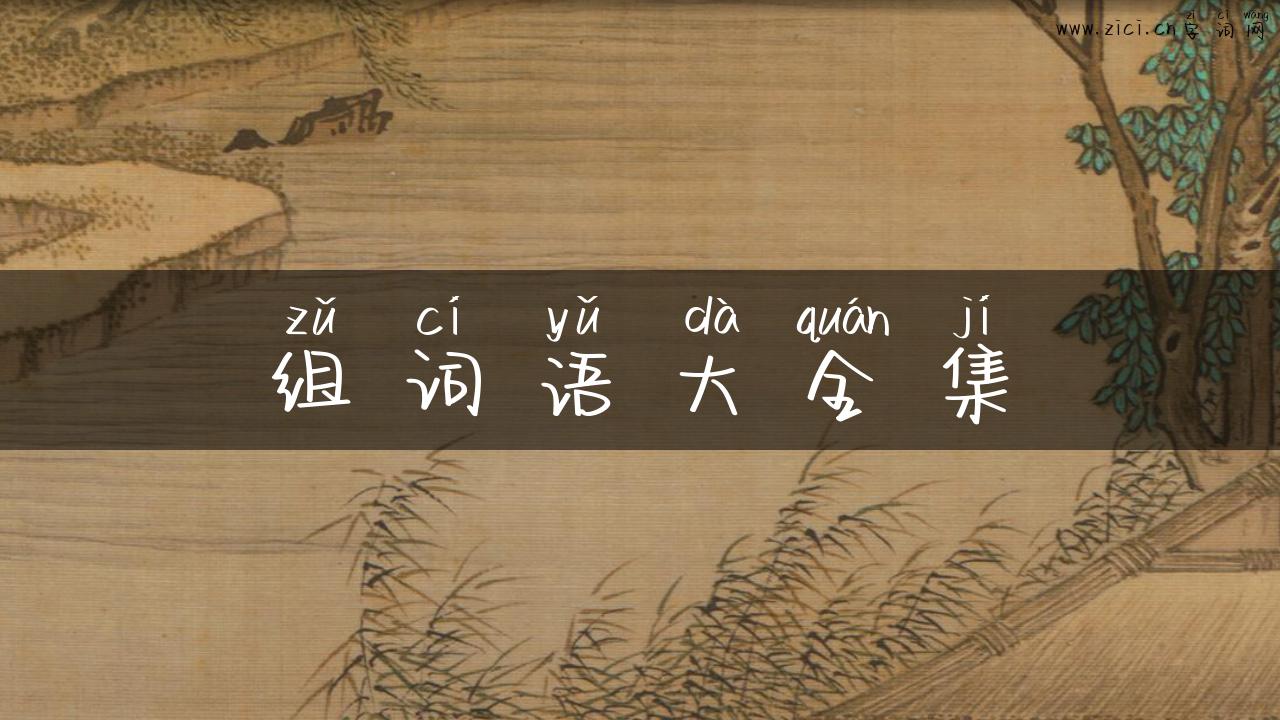 zì cí wǎng
www.zici.cn字词网
zǔ cí yǔ dà quán jí
组词语大全集